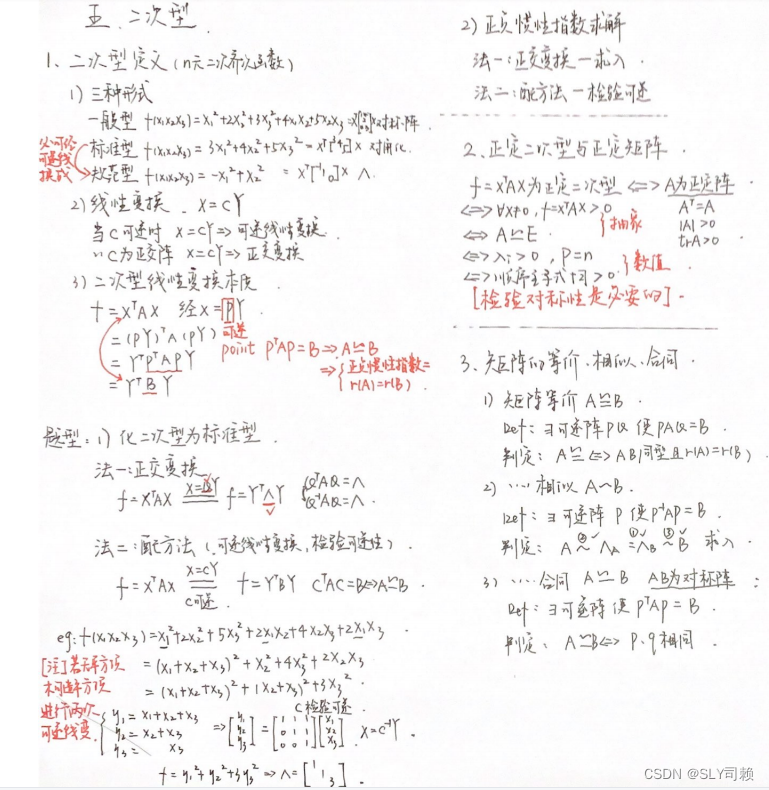 五、二次型.
1、二次型定义(n元二次齐次函数)
1) 三种形式
一般型 f(x₁x₂x₃)=x₁²+2x₂²+3x₃²+4x₁x₂+5x₂x₃
标准型 f(x₁x₂x₃)= 3x₁²+4x₂²+5x₃²
规范型 f(x₁x₂x₃)=-x₁²+x₂²
2)线性变换. X=CY
当C可逆时 X=CY⇒可逆线性变换.
〃C为正交阵 X=CY⇒正交变换
3)二次型线性变换本质
f=XᵀAX 经X=PY
可逆
=(PY)ᵀA(PY)
point PᵀAP=B⇒A≃B
=YᵀPᵀAPY
⇒{正负惯性指数=
r(A)=r(B)
=YᵀBY
题型:1)化二次型为标准型.
法一:正交变换
f=XᵀAX X=QY f=YᵀΛY {QᵀAQ=Λ
Q⁻¹AQ=Λ.
法二:配方法(可逆线性变换,检验可逆性)
f=XᵀAX X=CY f=YᵀBY CᵀAC=B⇔A≃B
C可逆.
eg:f(x₁x₂x₃)=x₁²+2x₂²+5x₃²+2x₁x₂+4x₂x₃+2x₁x₃.
[注]若无平方项
=(x₁+x₂+x₃)²+x₂²+4x₃²+2x₂x₃
构造平方项
=(x₁+x₂+x₃)²+(x₂+x₃)²+3x₃².
进行两次
可逆线变
C检验可逆.
{y₁=x₁+x₂+x₃
y₂=x₂+x₃
y₃= x₃
⇒[y₁ y₂ y₃]=[1 1 1 0 1 1 0 0 1][x₁ x₂ x₃] X=C⁻¹Y.
f=y₁²+y₂²+3y₃²⇒Λ=[1 1 3].
2)正负惯性指数求解
法一:正交变换—求λ.
法二:配方法—检验可逆
2、正定二次型与正定矩阵.
f=XᵀAX为正定二次型⇔A为正定阵
⇔∀x≠0,f=XᵀAX>0 Aᵀ=A
}抽象
⇔A≃E |A|>0
trA>0
⇔λᵢ>0,P=n
}数值
⇔顺序主子式>0
[检验对称性是必要的].
3、矩阵的等价、相似、合同.
1)矩阵等价 A≅B.
Def:∃可逆阵PQ使PAQ=B.
判定:A≅B⇔AB同型且r(A)=r(B)
2)‥‥相似 A~B.
Def:∃可逆阵P使P⁻¹AP=B.
判定:A~Λ_A=Λ_B~B 求λ.
3)‥‥合同 A≃B AB为对称阵;
Def:∃可逆阵使PᵀAP=B.
判定:A≃B⇔P、q相同.
CSDN @SLY司赖